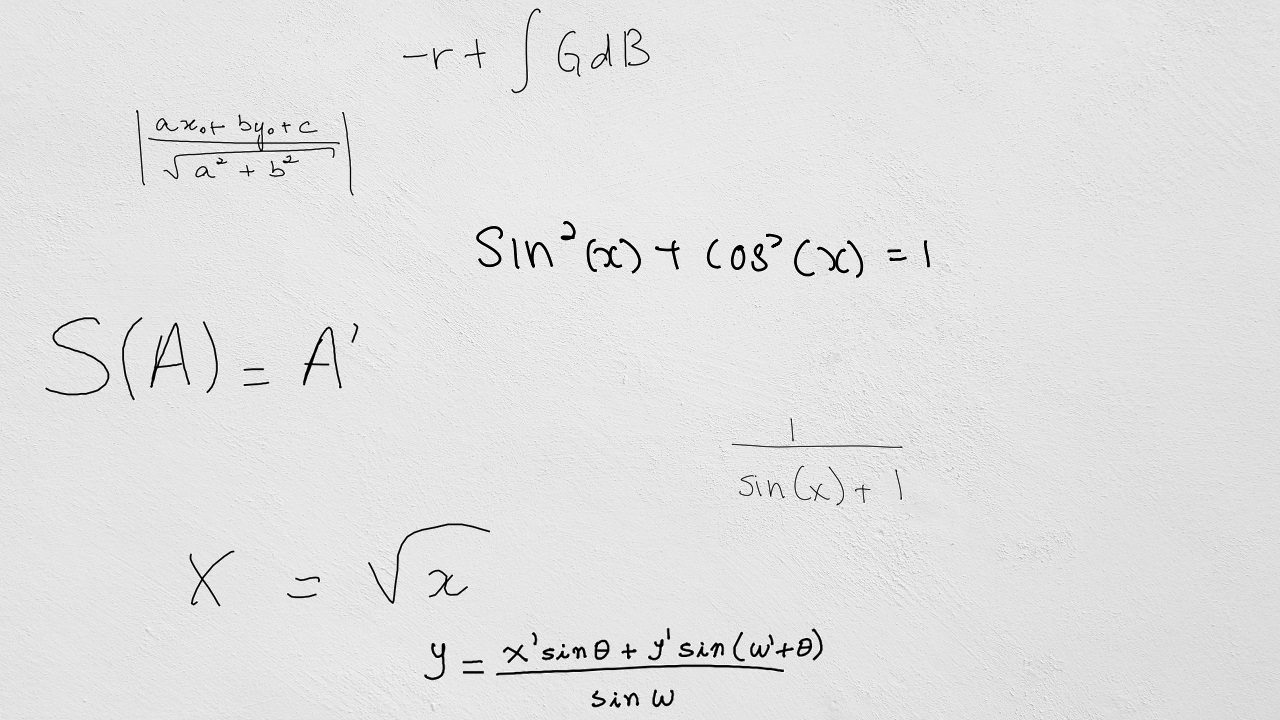 -r + ∫ G dB
|(ax₀ + by₀ + c) / √(a² + b²)|
Sin²(x) + cos²(x) = 1
S(A) = A'
1 / (sin(x) + 1)
X = √x
y = (x' sin θ + y' sin(w' + θ)) / sin w